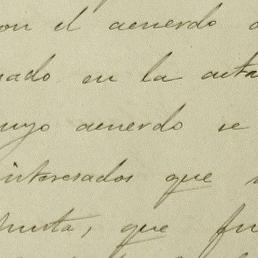 con el acuerdo
nado en la acta
cuyo acuerdo se
interesados que
Junta, que fu